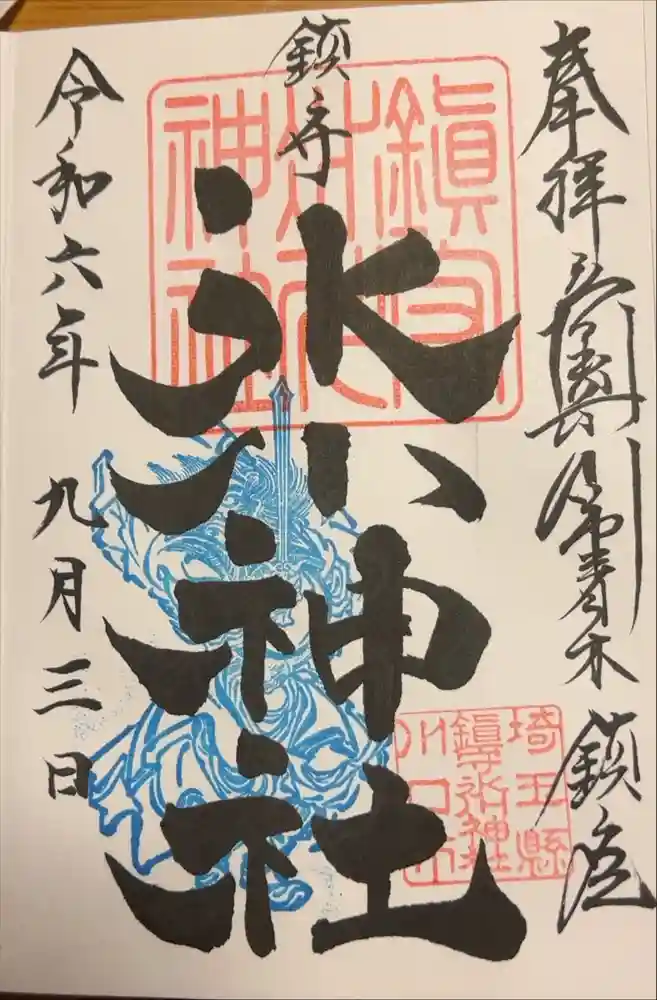 奉拝 青木 鎮座
鎮守
氷川神社
令和六年 九月三日
鎮守
氷川
神社
埼玉縣
鎮守氷川神社
川口市